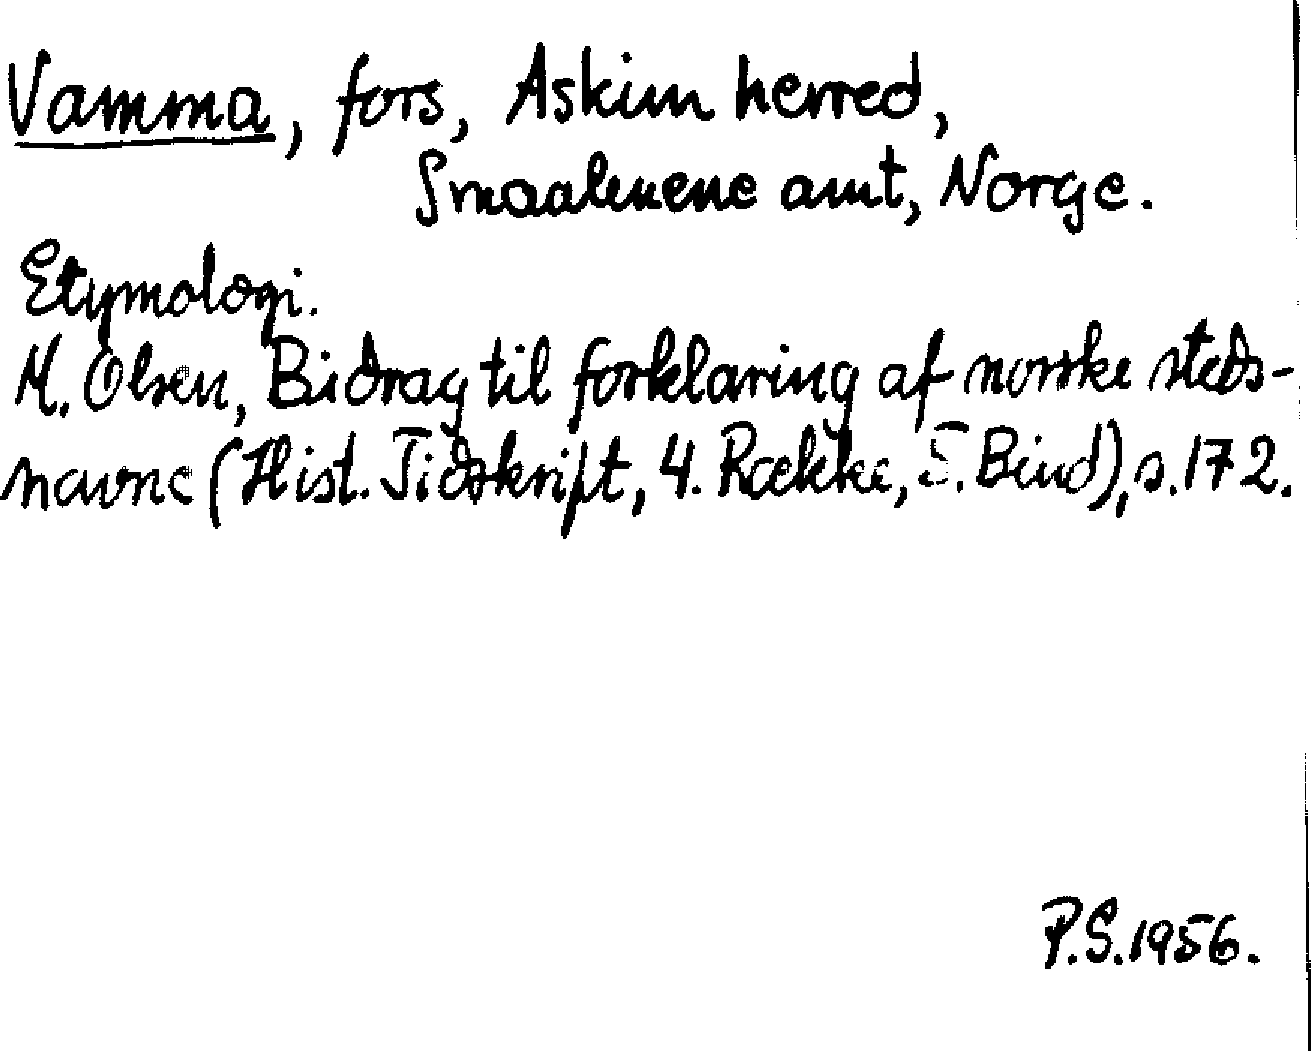 Vamma, fors, Askim herred,
Smaalenene amt, Norge.
Etymologi.
M. Olsen, Bidrag til forklaring af norske steds-
navne (Hist. Tidskrift, 4. Række, 5. Bind), s. 172.
P.S. 1956.